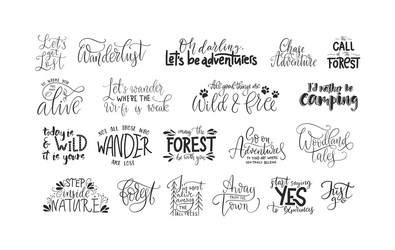 Let's
get
Lost
Wanderlust
Oh darling,
Let's be adventurers
Chase
Adventure
the
CALL
of the
FOREST
alive
Let's wander
WHERE THE
Wi-fi is weak
All good things are
Wild & Free
I'd rather be
camping
today is
& WILD
it is yours
NOT ALL THOSE WHO
WANDER
ARE LOST
may the
FOREST
be with you
Go on
Adventures
TO FIND OUT WHERE
YOU TRULY BELONG
Woodland
tales
STEP
inside
NATURE
Forest
Away
from the
Town
start saying
YES
to
Just
go